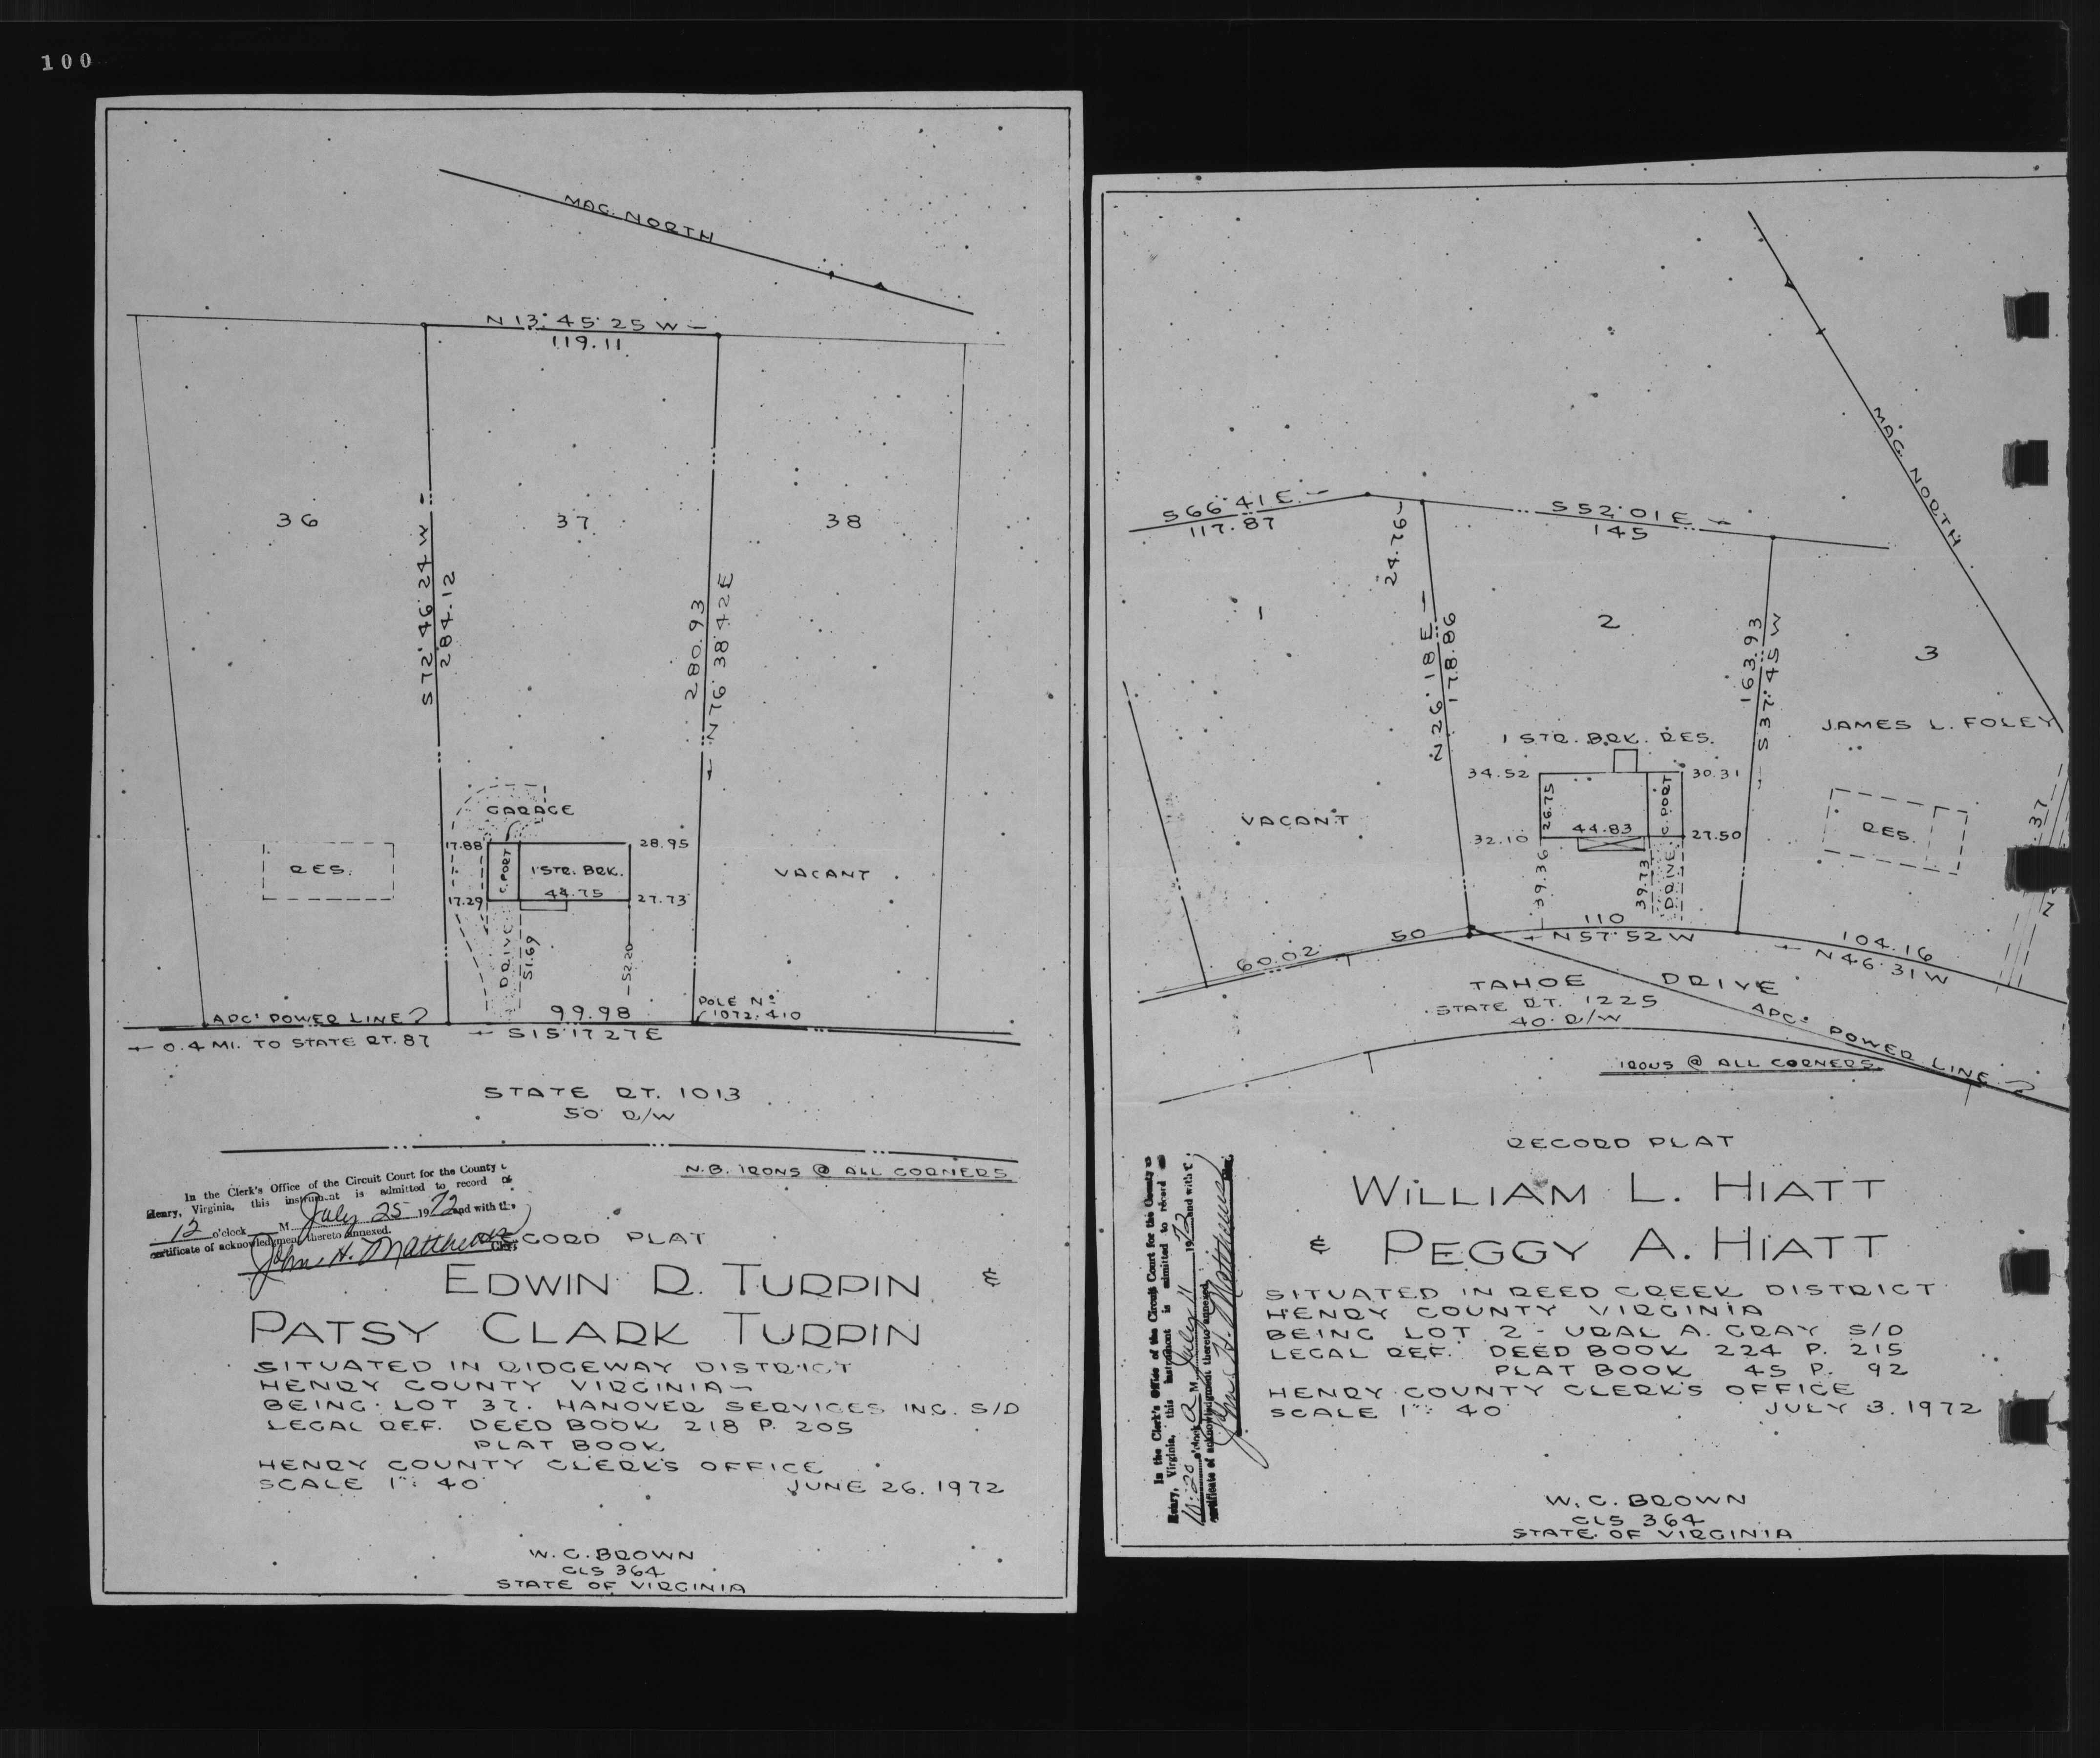 100
MAG. NORTH
N 13° 45' 25 W
119.11
36
37
38
S 72° 46' 24 W
284.12
280.93
N 76° 38' 42 E
GARAGE
17.88
28.95
RES.
C. PORT
1 STR. BRK.
44.75
VACANT
17.29
27.73
DRIVE
51.69
52.20
APC° POWER LINE
99.98
POLE N°
1072-410
0.4 MI. TO STATE RT. 87
S 15° 17' 27 E
STATE RT. 1013
50' R/W
N.B. IRONS @ ALL CORNERS
In the Clerk's Office of the Circuit Court for the County
Henry, Virginia, this instrument is admitted to record
12 o'clock M July 25 1972 and with the
certificate of acknowledgment thereto annexed.
John H. Matthews
CORD PLAT
EDWIN R. TURPIN &
PATSY CLARK TURPIN
SITUATED IN RIDGEWAY DISTRICT
HENRY COUNTY VIRGINIA
BEING LOT 37. HANOVER SERVICES INC. S/D
LEGAL REF. DEED BOOK 218 P. 205
PLAT BOOK
HENRY COUNTY CLERK'S OFFICE
SCALE 1": 40' JUNE 26, 1972
W. C. BROWN
CLS 364
STATE OF VIRGINIA
MAG. NORTH
S 66° 41 E
117.87
24.76
S 52° 01 E
145
1
2
3
N 26° 18 E
178.86
163.93
S 37° 45 W
JAMES L. FOLEY
1 STR. BRK. RES.
34.52
30.31
26.75
C. PORT
VACANT
44.83
32.10
27.50
RES.
37
39.36
39.73
DRIVE
N
110
50
60.02
N 57° 52 W
104.16
N 46° 31 W
TAHOE DRIVE
STATE RT. 1225
40' R/W
APC° POWER LINE
IRONS @ ALL CORNERS
RECORD PLAT
WILLIAM L. HIATT
& PEGGY A. HIATT
SITUATED IN REED CREEK DISTRICT
HENRY COUNTY VIRGINIA
BEING LOT 2 - URAL A. GRAY S/D
LEGAL REF. DEED BOOK 224 P. 215
PLAT BOOK 45 P. 92
HENRY COUNTY CLERK'S OFFICE
SCALE 1": 40' JULY 3, 1972
W. C. BROWN
CLS 364
STATE OF VIRGINIA
In the Clerk's Office of the Circuit Court for the County
Henry, Virginia, this instrument is admitted to record
10:20 o'clock A M July 11 1972 and with
certificate of acknowledgment thereto annexed.
John H. Matthews